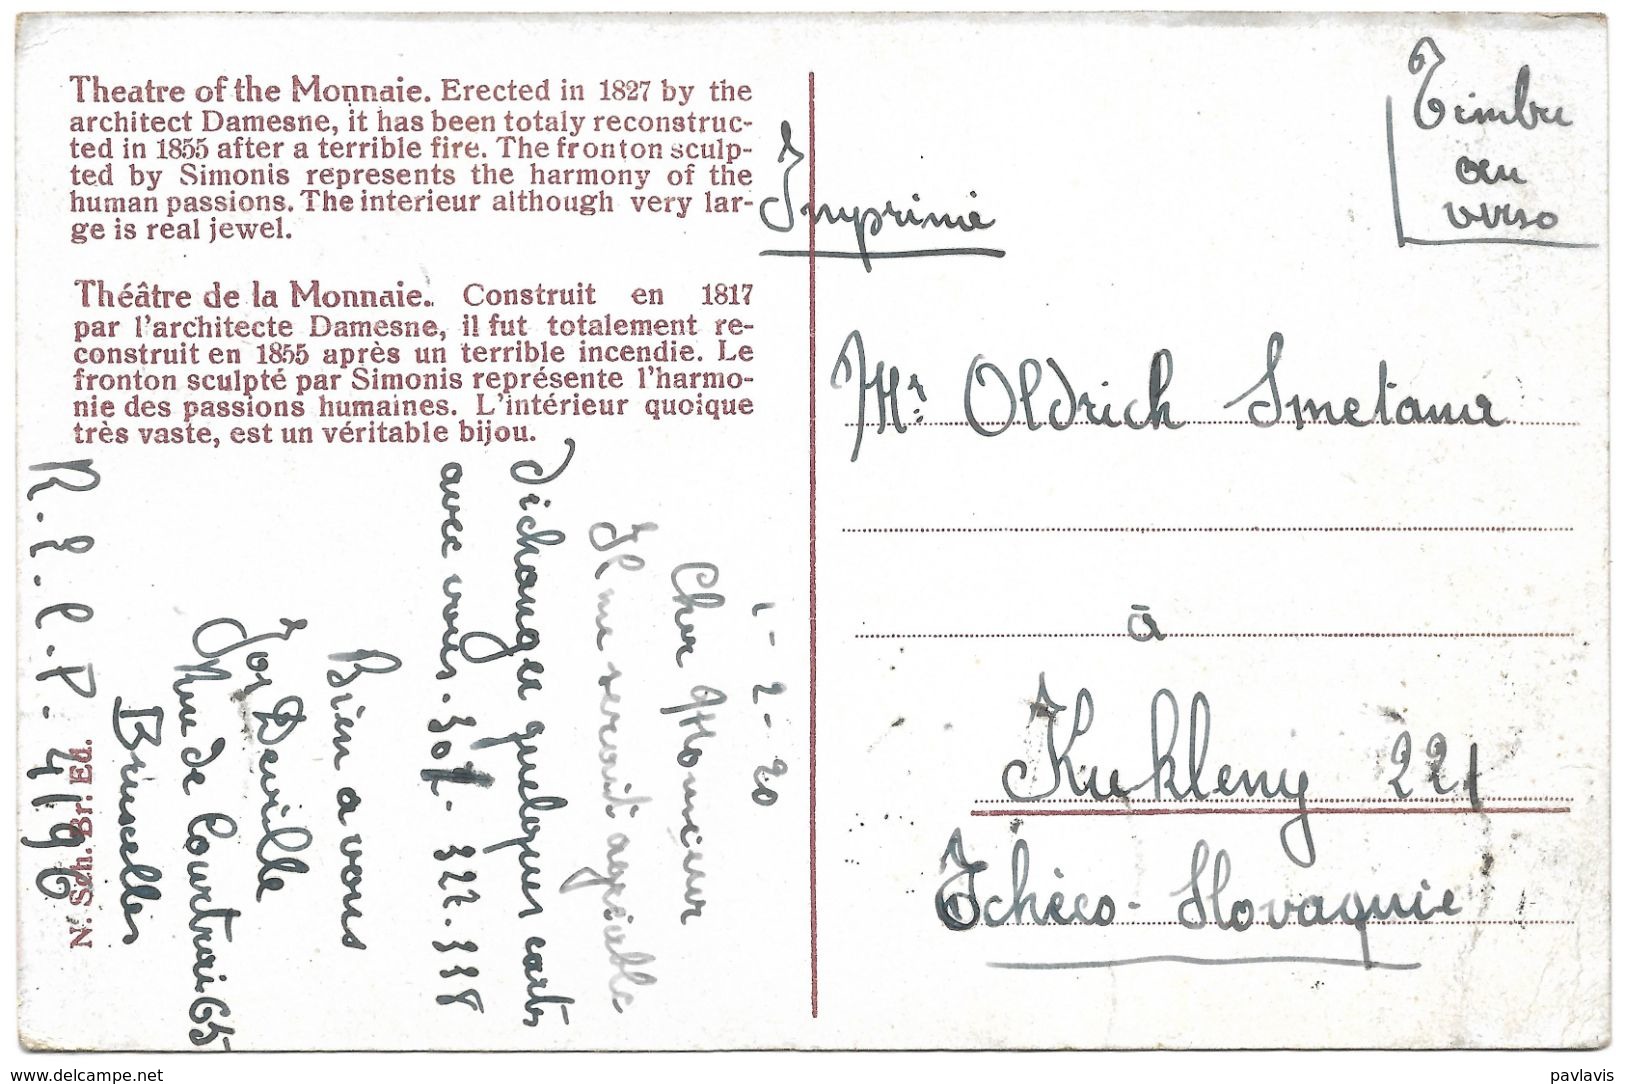 Theatre of the Monnaie. Erected in 1827 by the
architect Damesne, it has been totaly reconstruc-
ted in 1855 after a terrible fire. The fronton sculp-
ted by Simonis represents the harmony of the
human passions. The interieur although very lar-
ge is real jewel.
Théâtre de la Monnaie. Construit en 1817
par l'architecte Damesne, il fut totalement re-
construit en 1855 après un terrible incendie. Le
fronton sculpté par Simonis représente l'harmo-
nie des passions humaines. L'intérieur quoique
très vaste, est un véritable bijou.
1-2-20
Cher Monsieur
Il me serait agréable
d'échanger quelques cartes
avec vous. 307- 327. 338
Bien a vous
Jos Deville
Rue de Courtrai 65
Bruxelles
N. Sch. Br. Ed.
Imprimé
Timbre
au
verso
Mr. Oldrich Smetana
à
Kukleny 221
Tchéco-Slovaquie
delcampe.net
pavlavis